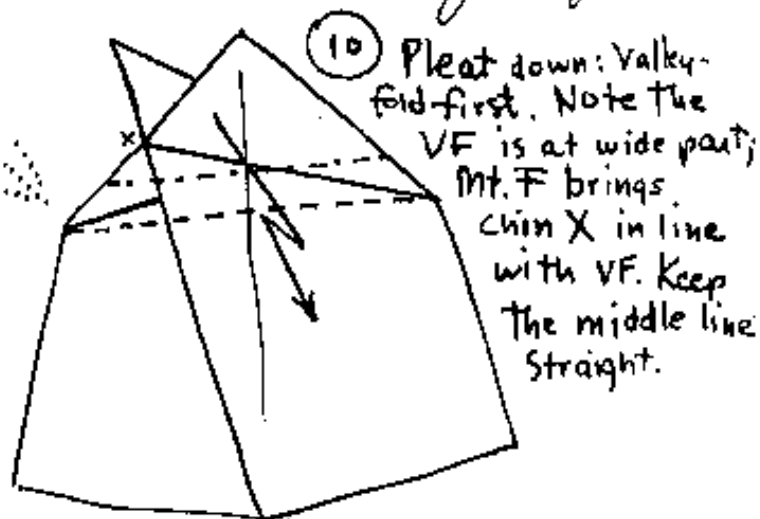 10 Pleat down: Valley-
fold-first. Note the
VF is at wide part;
Mt. F brings
chin X in line
with VF. Keep
the middle line
straight.
x